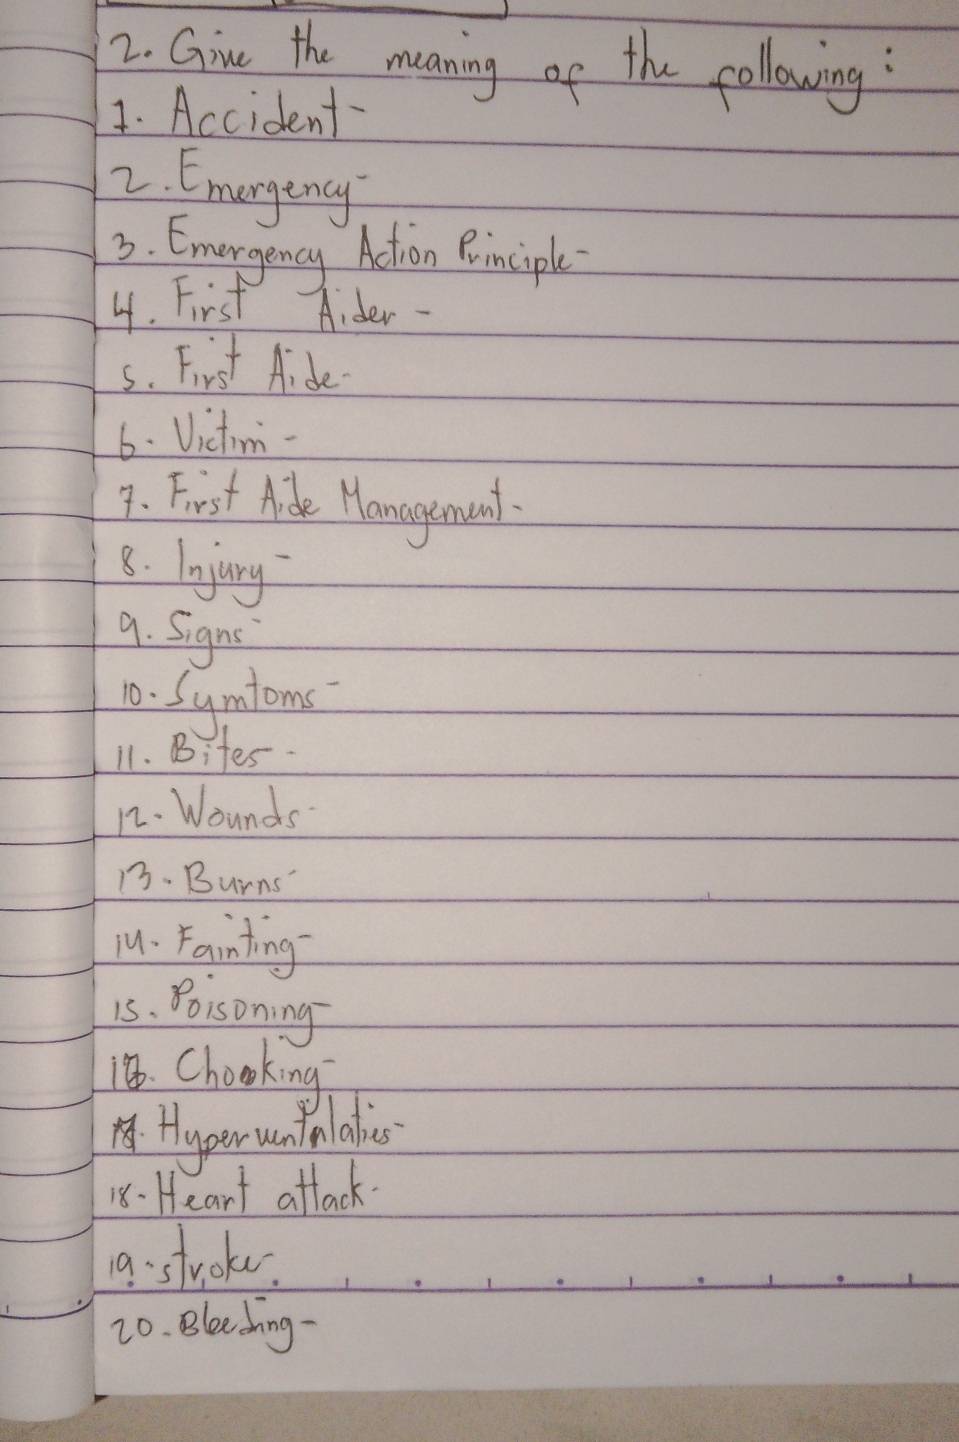 2. Give the meaning of the following:
1. Accident-
2. Emergency-
3. Emergency Action Principle-
4. First Aider-
5. First Aide-
6. Victim-
7. First Aide Management-
8. Injury-
9. Signs-
10. Symtoms-
11. Bites-
12. Wounds-
13. Burns-
14. Fainting-
15. Poisoning-
16. Chooking-
17.
18. Heart attack-
19. stroke-
20. Bleeding-